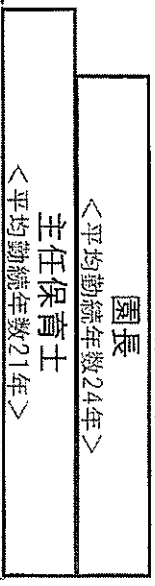 園長
<平均勤続年数24年>
主任保育士
<平均勤続年数21年>